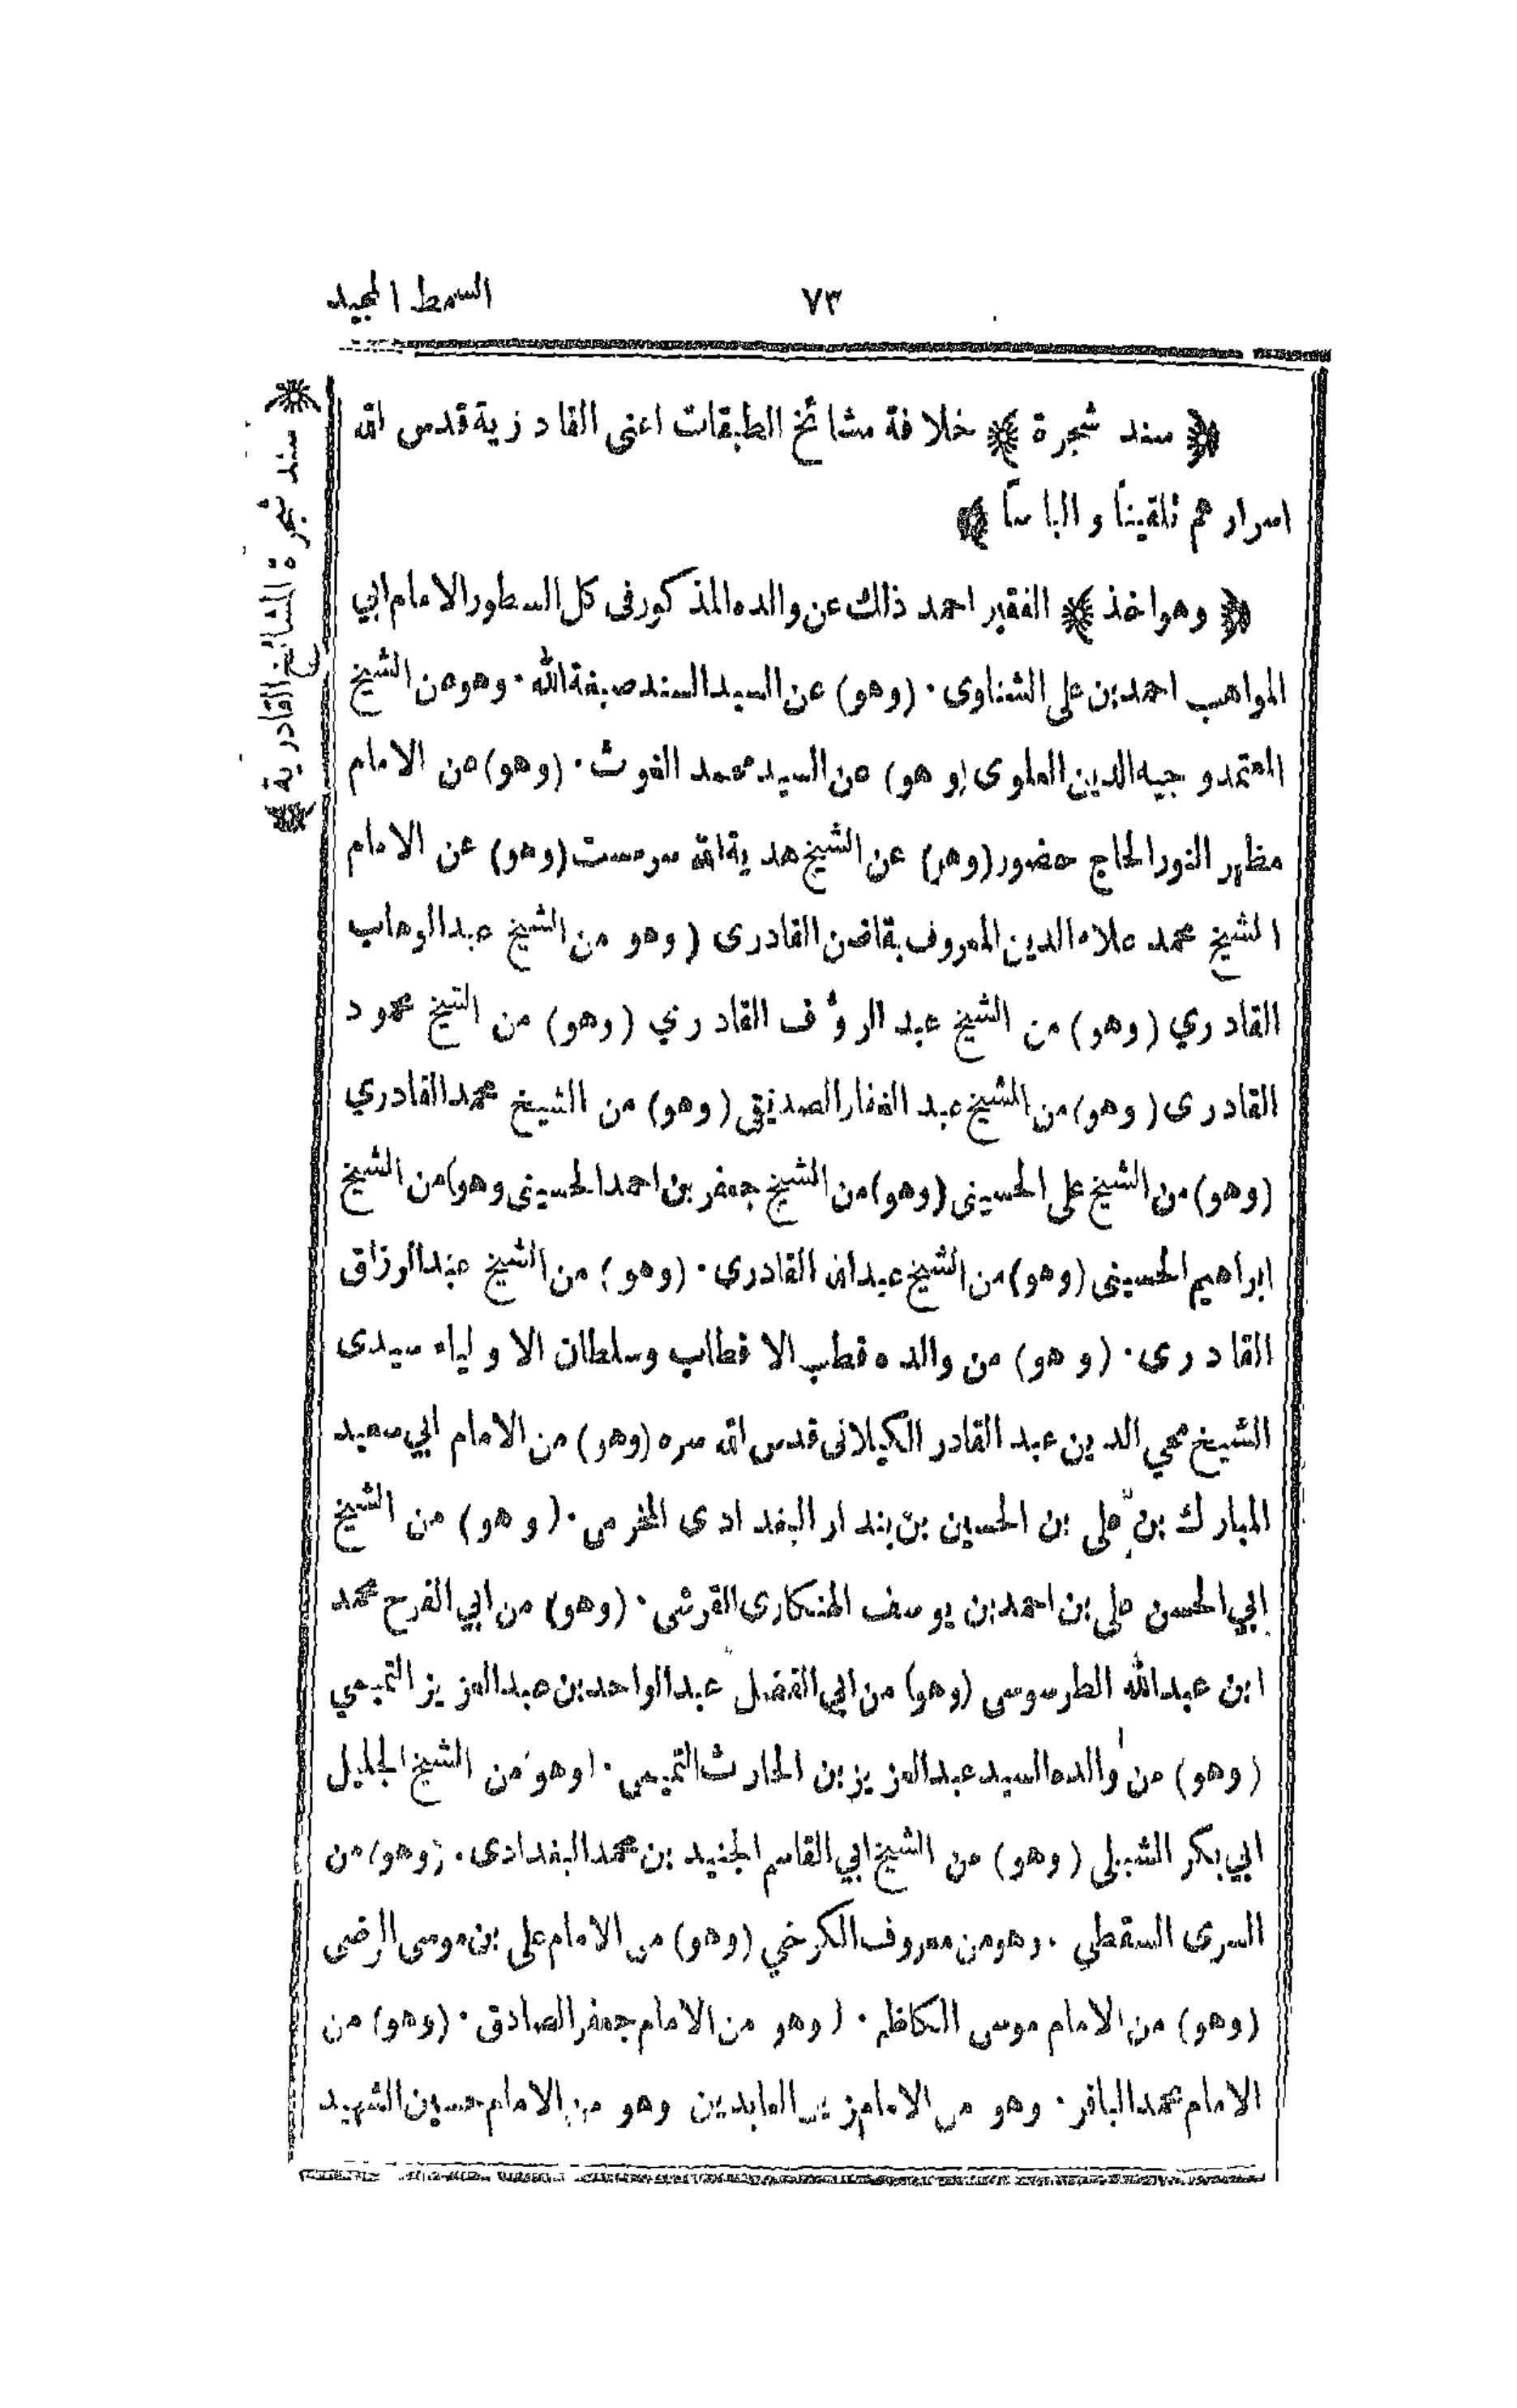 السمط المجيد
٧٣
﴿ سند شجرة ﴾ خلافة مشائخ الطبقات اعنى القادرية قدس الله
اسرارهم تلقيناً والباساً ﴾
﴿ وهو اخذ ﴾ الفقير احمد ذلك عن والده المذكور فى كل السطور الامام ابي
المواهب احمد بن على الشناوى · (وهو) عن السيد السند صبغة الله · وهو عن الشيخ
المعتمد وجيه الدين العلوى (وهو) عن السيد محمد الغوث · (وهو) من الامام
مظهر النور الحاج حضور (وهو) عن الشيخ هدية الله سرمست (وهو) عن الامام
الشيخ محمد علاء الدين المعروف بقاضن القادرى (وهو من الشيخ عبد الوهاب
القادري (وهو) من الشيخ عبد الرؤف القادري (وهو) من الشيخ محمود
القادرى (وهو) من الشيخ عبد الغفار الصديقى (وهو) من الشيخ محمد القادري
(وهو) من الشيخ على الحسينى (وهو) من الشيخ جعفر بن احمد الحسينى وهو) من الشيخ
ابراهيم الحسينى (وهو) من الشيخ عبد الله القادرى · (وهو) من الشيخ عبد الرزاق
القادرى · (وهو) من والده قطب الاقطاب وسلطان الاولياء سيدى
الشيخ محي الدين عبد القادر الكيلانى قدس الله سره (وهو) من الامام ابي سعيد
المبارك بن على بن الحسين بن بندار البغدادى المخرمى · (وهو) من الشيخ
ابي الحسن على بن احمد بن يوسف الهنكارى القرشى · (وهو) من ابي الفرح محمد
ابن عبد الله الطرسوسى (وهو) من ابي الفضل عبد الواحد بن عبد العزيز التميمي
(وهو) من والده السيد عبد العزيز بن الحارث التميمى · (وهو من الشيخ الجليل
ابي بكر الشبلى (وهو) من الشيخ ابي القاسم الجنيد بن محمد البغدادى · (وهو) من
السرى السقطي · وهو من معروف الكرخي (وهو) من الامام على بن موسى الرضى
(وهو) من الامام موسى الكاظم · (وهو من الامام جعفر الصادق · (وهو) من
الامام محمد الباقر · وهو من الامام زين العابدين وهو من الامام حسين الشهيد
﴿ سند شجرة المشائخ القادرية ﴾